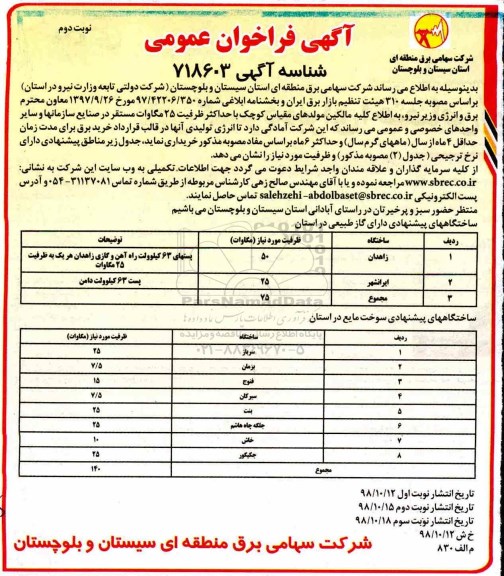 نوبت دوم
آگهی فراخوان عمومی
شناسه آگهی ۷۱۸۶۰۳
شرکت سهامی برق منطقه ای
استان سیستان و بلوچستان
بدینوسیله به اطلاع می رساند شرکت سهامی برق منطقه ای استان سیستان و بلوچستان (شرکت دولتی تابعه وزارت نیرو در استان)
براساس مصوبه جلسه ۳۱۰ هیئت تنظیم بازار برق ایران و بخشنامه ابلاغی شماره ۹۷/۴۲۲۰۶/۳۵۰ مورخ ۱۳۹۷/۹/۲۶ معاون محترم
برق و انرژی وزیر نیرو، به اطلاع کلیه مالکین مولدهای مقیاس کوچک با حداکثر ظرفیت ۲۵ مگاوات مستقر در صنایع سازمانها و سایر
واحدهای خصوصی و عمومی می رساند که این شرکت آمادگی دارد تا انرژی تولیدی آنها در قالب قرارداد خرید برق برای مدت زمان
حداقل ۴ ماه از سال (ماههای گرم سال) و حداکثر ۶ ماه براساس مفاد مصوبه مذکور خریداری نماید، جدول زیر مناطق پیشنهادی دارای
نرخ ترجیحی (جدول (۲) مصوبه مذکور) و ظرفیت مورد نیاز را نشان می دهد.
از کلیه سرمایه گذاران و علاقه مندان واجد شرایط دعوت می گردد جهت اطلاعات تکمیلی به وب سایت این شرکت به نشانی:
www.sbrec.co.ir مراجعه نموده و یا با آقای مهندس صالح زهی کارشناس مربوطه از طریق شماره تماس ۳۱۱۳۷۰۸۱-۰۵۴ و آدرس
پست الکترونیکی salehzehi-abdolbaset@sbrec.co.ir تماس حاصل نمایند.
منتظر حضور سبز و پرخیرتان در راستای آبادانی استان سیستان و بلوچستان می باشیم
ساختگاههای پیشنهادی دارای گاز طبیعی در استان
ردیف ساختگاه ظرفیت مورد نیاز (مگاوات) توضیحات
۱ زاهدان ۵۰ پستهای ۶۳ کیلوولت راه آهن و گازی زاهدان هر یک به ظرفیت
۲۵ مگاوات
۲ ایرانشهر ۲۵ پست ۶۳ کیلوولت دامن
۳ مجموع ۷۵
ParsNamadData
پایگاه اطلاع رسانی مناقصه و مزایده
۰۲۱-۸۸۳۴۹۶۷۰-۵
ساختگاههای پیشنهادی سوخت مایع در استان
ردیف ساختگاه ظرفیت مورد نیاز (مگاوات)
۱ سرباز ۲۵
۲ بزمان ۷/۵
۳ فنوج ۱۵
۴ سیرکان ۷/۵
۵ بنت ۲۵
۶ جلگه چاه هاشم ۲۵
۷ خاش ۱۰
۸ جکیگور ۲۵
مجموع ۱۴۰
تاریخ انتشار نوبت اول ۹۸/۱۰/۱۲
تاریخ انتشار نوبت دوم ۹۸/۱۰/۱۵
تاریخ انتشار نوبت سوم ۹۸/۱۰/۱۸
خ ش ۹۸/۱۰/۱۲
م الف ۸۳۰
شرکت سهامی برق منطقه ای سیستان و بلوچستان